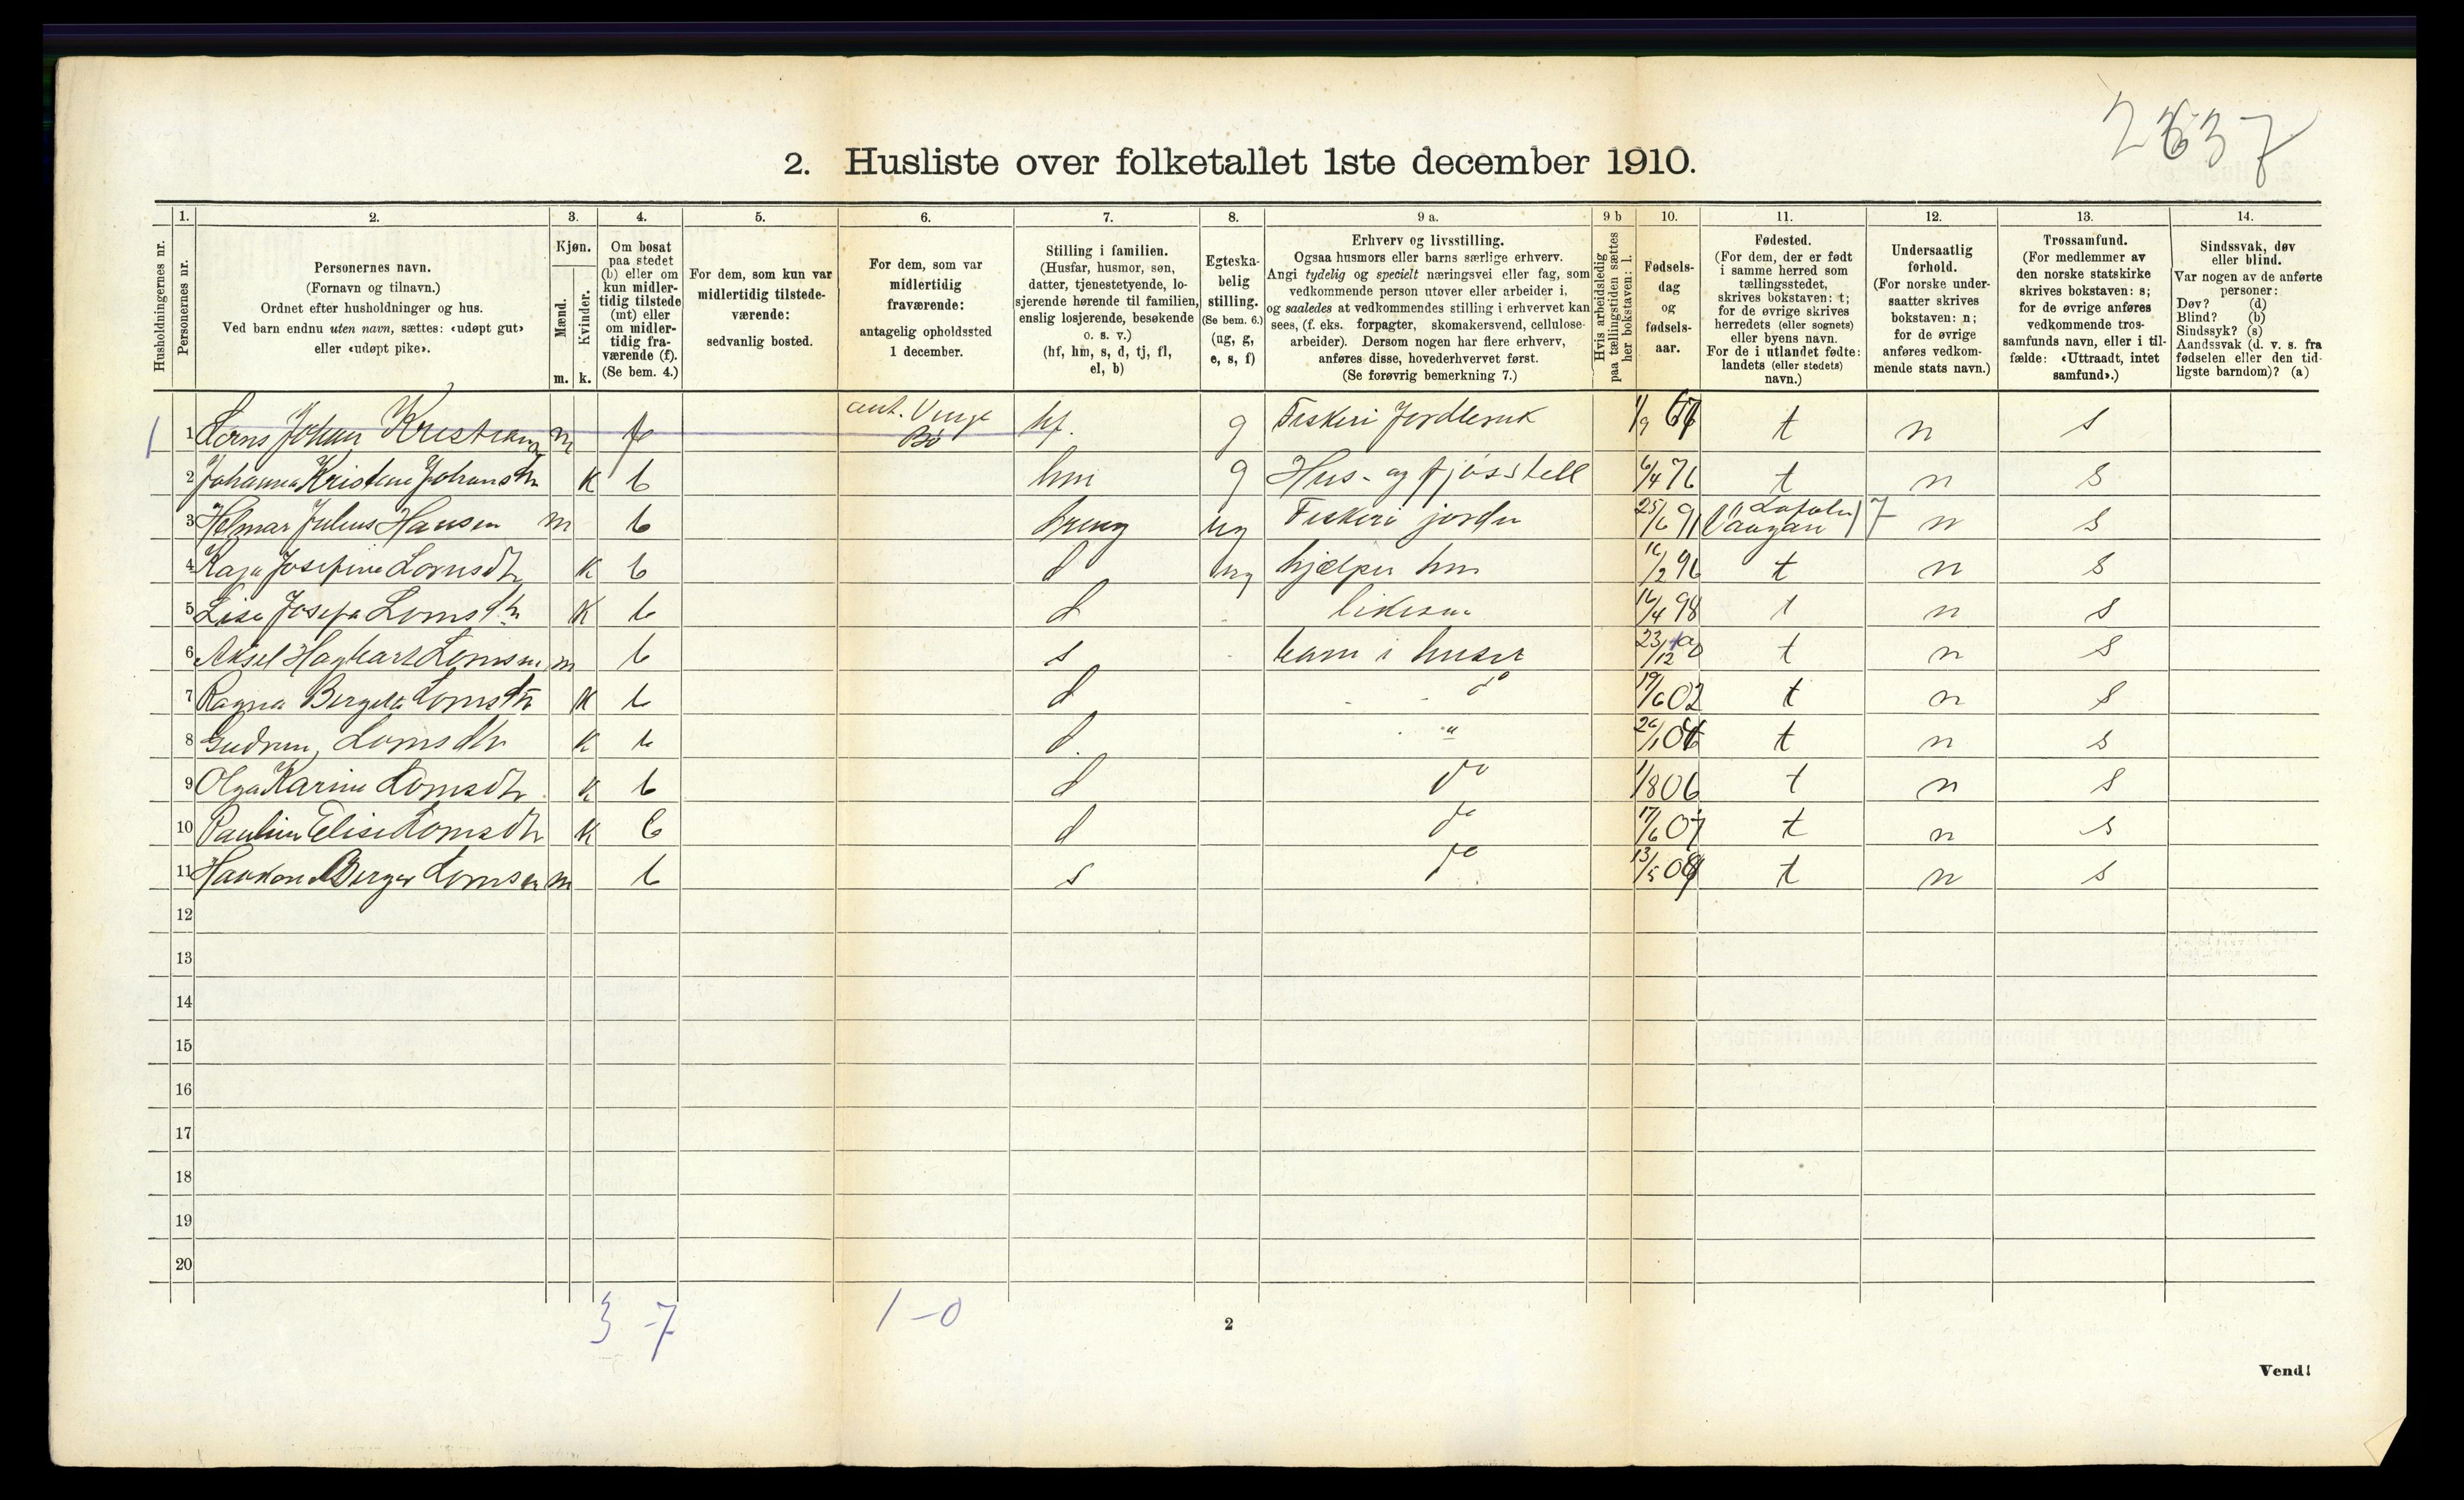 2637
2. Husliste over folketallet 1ste december 1910.
Husholdningernes nr.
1.
Personernes nr.
2.
Personernes navn.
(Fornavn og tilnavn.)
Ordnet efter husholdninger og hus.
Ved barn endnu uten navn, sættes: «udøpt gut»
eller «udøpt pike».
3.
Kjøn.
Mænd.
Kvinder.
m. k.
4.
Om bosat
paa stedet
(b) eller om
kun midler-
tidig tilstede
(mt) eller
om midler-
tidig fra-
værende (f).
(Se bem. 4.)
5.
For dem, som kun var
midlertidig tilstede-
værende:
sedvanlig bosted.
6.
For dem, som var
midlertidig
fraværende:
antagelig opholdssted
1 december.
7.
Stilling i familien.
(Husfar, husmor, søn,
datter, tjenestetyende, lo-
sjerende hørende til familien,
enslig losjerende, besøkende
o. s. v.)
(hf, hm, s, d, tj, fl,
el, b)
8.
Egteska-
belig
stilling.
(Se bem. 6.)
(ug, g,
e, s, f)
9 a.
Erhverv og livsstilling.
Ogsaa husmors eller barns særlige erhverv.
Angi tydelig og specielt næringsvei eller fag, som
vedkommende person utøver eller arbeider i,
og saaledes at vedkommendes stilling i erhvervet kan
sees, (f. eks. forpagter, skomakersvend, cellulose-
arbeider). Dersom nogen har flere erhverv,
anføres disse, hovederhvervet først.
(Se forøvrig bemerkning 7.)
9 b
Hvis arbeidsledig
paa tællingstiden sættes
her bokstaven: l.
10.
Fødsels-
dag
og
fødsels-
aar.
11.
Fødested.
(For dem, der er født
i samme herred som
tællingsstedet,
skrives bokstaven: t;
for de øvrige skrives
herredets (eller sognets)
eller byens navn.
For de i utlandet fødte:
landets (eller stedets)
navn.)
12.
Undersaatlig
forhold.
(For norske under-
saatter skrives
bokstaven: n;
for de øvrige
anføres vedkom-
mende stats navn.)
13.
Trossamfund.
(For medlemmer av
den norske statskirke
skrives bokstaven: s;
for de øvrige anføres
vedkommende tros-
samfunds navn, eller i til-
fælde: «Uttraadt, intet
samfund».)
14.
Sindssvak, døv
eller blind.
Var nogen av de anførte
personer:
Døv? (d)
Blind? (b)
Sindssyk? (s)
Aandssvak (d. v. s. fra
fødselen eller den tid-
ligste barndom)? (a)
1 1 Johan m f Bø hf. g Fiskeri 1/9 t n s
2 Johanna Kristine k b hm g Hus- og fjøsstell 6/4 76 t n s
3 Helmar Julius Hansen m b ug Fiskeri jordn 25/6 91 Vaagan Lofoten n s
4 Kaja Josefine Lornsdtr k b d ug hjælper hm 16/2 96 t n s
5 Josefa Lornsdtr k b d 16/4 98 t n s
6 Aksel Lornsen m b s barn i huset 23/12 t n s
7 Ragna Lornsdtr k b d do 19/6 02 t n s
8 Gudrun Lornsdtr k b d " 26/1 t n s
9 Olga Karine Lornsdtr k b d do 1/8 06 t n s
10 Elise Lornsdtr k b d do 17/6 07 t n s
11 Haakon Berger Lornsen m b s do 13/5 09 t n s
12
13
14
15
16
17
18
19
20
3 -7 1 -0
2
Vend!